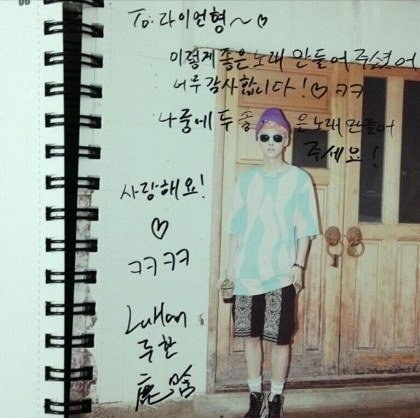 To. 라이언형 ~ ♡
이렇게 좋은 노래 만들어 주셨어
너무 감사합니다! ♡ ㅋㅋ
나중에 두 좋 은 노래 만들어
주세요!
사랑해요!
♡
ㅋㅋㅋㅋ
LuHan
루한
鹿晗